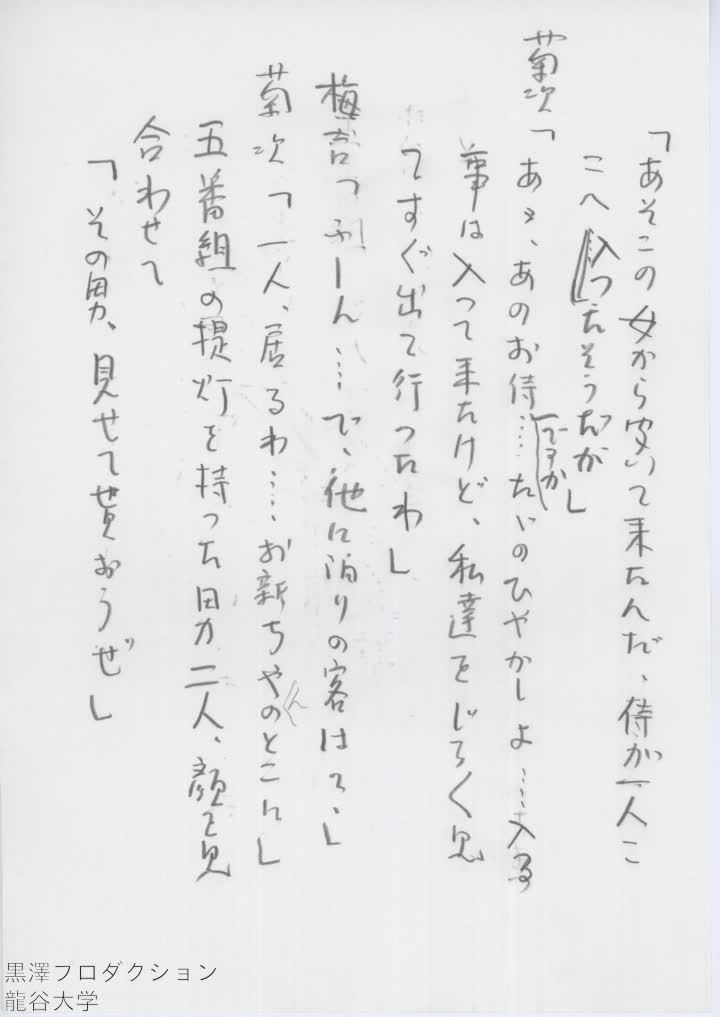 「あそこの女から安いて来たんだ、侍が一人こ
こへ入つたそうだが」
ですか
菊次「あゝ、あのお侍‥‥たゞのひやかしよ‥‥入る
事は入つて来たけど、私達をじろ〱見
てすぐ出て行つたわ」
梅吉「ふーん‥‥で、他に泊りの客はて、」
菊次「一人、居るわ‥‥お新ちやんのとこに」
五番組の提灯を持つた男が二人、顔を見
合わせて
「その男、見せて貰おうぜ」
黒澤プロダクション
龍谷大学